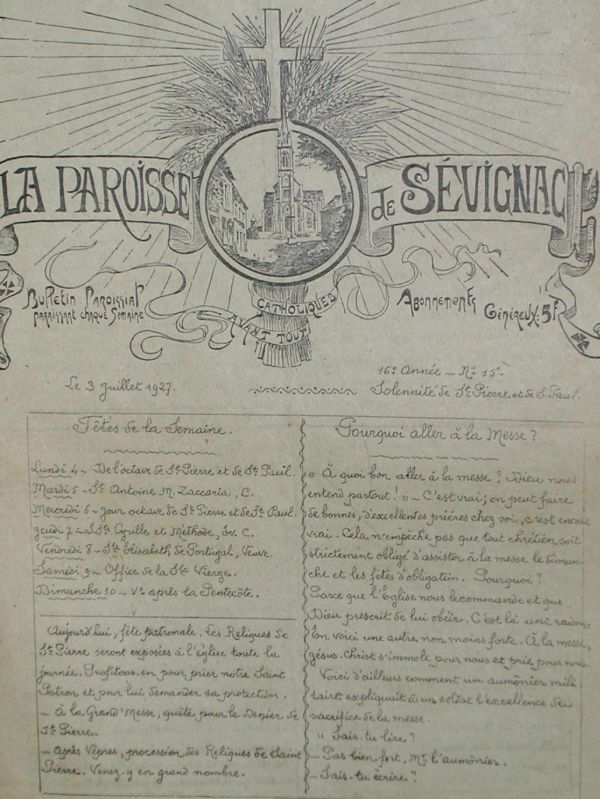 LA PAROISSE de SÉVIGNAC
Bulletin Paroissial
paraissant chaque Semaine
CATHOLIQUES
AVANT TOUT
Abonnements
Généreux: 5F
Le 3 Juillet 1927.
16e Année - No 15
Solennité de St Pierre et de S. Paul.
Fêtes de la Semaine.
Lundi 4 - De l'octave de St Pierre et de St Paul.
Mardi 5 - St Antoine M. Zaccaria, C.
Mercredi 6 - Jour octave de St Pierre et de St Paul.
Jeudi 7 - SSts Cyrille et Méthode, Ev. C.
Vendredi 8 - Ste Elisabeth de Portugal, Veuve.
Samedi 9 - Office de la Ste Vierge.
Dimanche 10 - Ve après la Pentecôte.
Aujourd'hui, fête patronale. Les Reliques de
St Pierre seront exposées à l'église toute la
journée. Profitons en pour prier notre Saint
Patron et pour lui demander sa protection.
- À la Grand'Messe, quête pour le Denier de
St Pierre.
- Après Vêpres, procession des Reliques de Saint
Pierre. Venez-y en grand nombre.
Pourquoi aller à la Messe ?
" À quoi bon aller à la messe ? Dieu nous
entend partout ! " - C'est vrai ; on peut faire
de bonnes, d'excellentes prières chez soi, c'est encore
vrai. Cela n'empêche pas que tout chrétien soit
strictement obligé d'assister à la messe le diman-
che et les fêtes d'obligation. Pourquoi ?
Parce que l'Église nous le commande et que
Dieu prescrit de lui obéir. C'est là une raison.
En voici une autre non moins forte. À la messe,
Jésus-Christ s'immole pour nous et prie pour nous.
Voici d'ailleurs comment un aumônier mili-
taire expliquait à un soldat l'excellence du
sacrifice de la messe.
" Sais-tu lire ?
- Pas bien fort, Mr l'aumônier.
- Sais-tu écrire ?